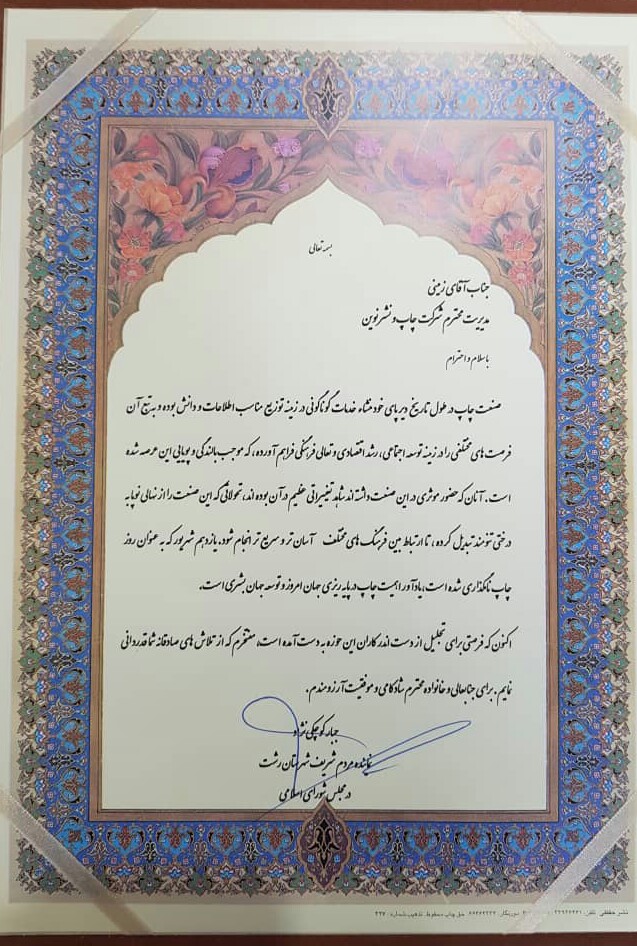 بسمه تعالی
جناب آقای زمینی
مدیریت محترم شرکت چاپ و نشر نوین
با سلام و احترام
صنعت چاپ در طول تاریخ دیرپای خود منشاء خدمات گوناگونی در زمینه توزیع مناسب اطلاعات و دانش بوده و به تبع آن
فرصت های مختلفی را در زمینه توسعه اجتماعی، رشد اقتصادی و تعالی فرهنگی فراهم آورده، که موجب بالندگی و پویایی این عرصه شده
است. آنان که حضور موثری در این صنعت داشته اند شاهد تغییراتی عظیم در آن بوده اند، تحولاتی که این صنعت را از نهالی نوپا به
درختی تنومند تبدیل کرده، تا ارتباط بین فرهنگ های مختلف آسان تر و سریع تر انجام شود. یازدهم شهریور که به عنوان روز
چاپ نامگذاری شده است، یادآور اهمیت چاپ در پایه ریزی جهان امروز و توسعه جهان بشری است.
اکنون که فرصتی برای تجلیل از دست اندرکاران این حوزه به دست آمده است، مفتخرم که از تلاش های صادقانه شما قدردانی
نمایم. برای جنابعالی و خانواده محترم شادکامی و موفقیت آرزومندم.
جبار کوچکی نژاد
نماینده مردم شریف شهرستان رشت
در مجلس شورای اسلامی